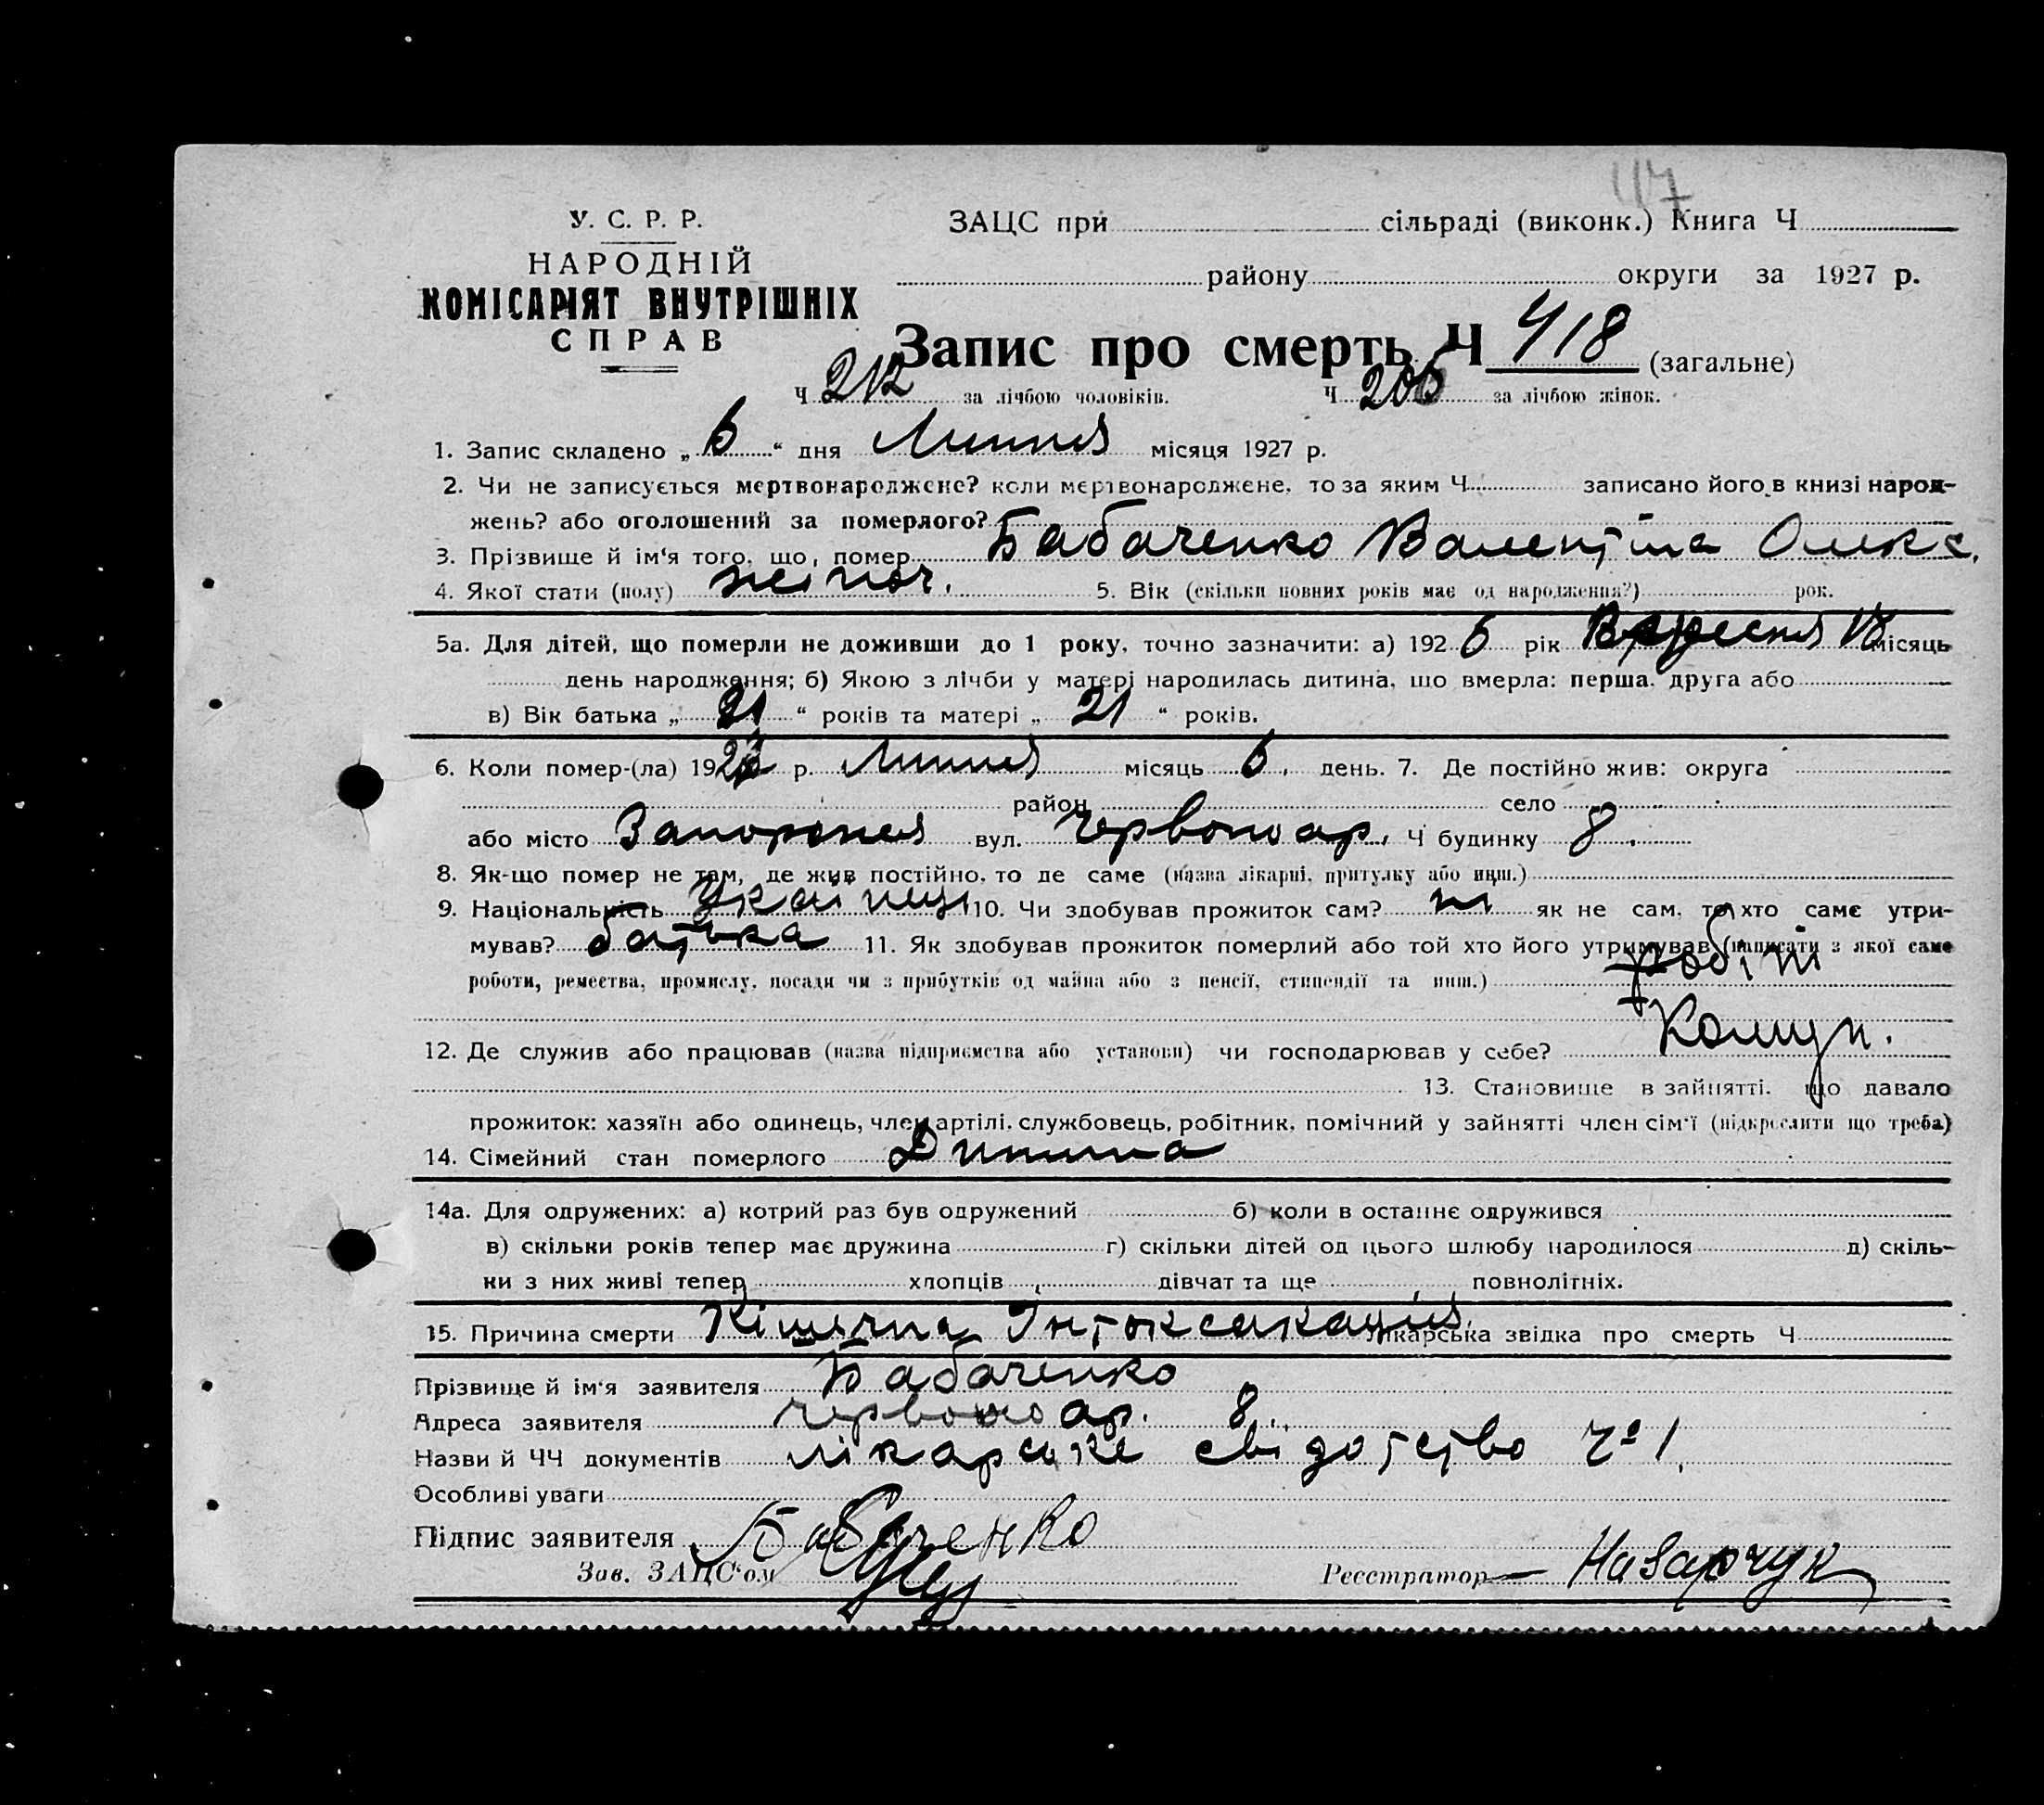 417
У. С. Р. Р.
НАРОДНІЙ
КОМІСАРІЯТ ВНУТРІШНІХ
СПРАВ
ЗАЦС при сільраді (виконк.) Книга Ч
району округи за 1927 р.
Запис про смерть Ч 418 (загальне)
Ч 212 за лічбою чоловіків. Ч 206 за лічбою жінок.
1. Запис складено „ 6 “ дня Липня місяця 1927 р.
2. Чи не записується мертвонароджене? коли мертвонароджене, то за яким Ч записано його в книзі народ-
жень? або оголошений за померлого?
3. Прізвище й ім‘я того, що, помер Бабаченко Валентіна Олекс.
4. Якої стати (полу) жіноч. 5. Вік (скільки повних років має од народження?) рок.
5а. Для дітей, що померли не доживши до 1 року, точно зазначити: а) 192 6 рік Вересня 18 місяць
день народження; б) Якою з лічби у матері народилась дитина, що вмерла: перша, друга або
в) Вік батька „ 21 “ років та матері „ 21 “ років.
6. Коли помер-(ла) 1927 р. Липня місяць 6 день. 7. Де постійно жив: округа
район село
або місто Запоріжжя вул. Червоноар. Ч будинку 8.
8. Як-що помер не там, де жив постійно, то де саме (назва лікарні, притулку або инш.)
9. Національність 10. Чи здобував прожиток сам? ні як не сам, то хто саме утри-
мував? батька 11. Як здобував прожиток померлий або той хто його утримував (написати з якої саме
роботи, ремества, промислу, посади чи з прибутків од майна або з пенсії, стипендії та инш.) робітн
12. Де служив або працював (назва підприємства або установи) чи господарював у себе? Комун.
13. Становище в зайнятті, що давало
прожиток: хазяїн або одинець, член артілі, службовець, робітник, помічний у зайнятті член сім‘ї (підкреслити що треба)
14. Сімейний стан померлого Дитина
14а. Для одружених: а) котрий раз був одружений б) коли в останнє одружився
в) скільки років тепер має дружина г) скільки дітей од цього шлюбу народилося д) скіль-
ки з них живі тепер хлопців, дівчат та ще повнолітніх.
15. Причина смерти Кішечна Інтоксакація лікарська звідка про смерть Ч
Прізвище й ім‘я заявителя Бабаченко
Адреса заявителя Червоноар. 8.
Назви й ЧЧ документів лікарське свідотство Ч° 1.
Особливі уваги
Підпис заявителя Бабаченко
Зав. ЗАЦС‘ом Реєстратор Назарчук